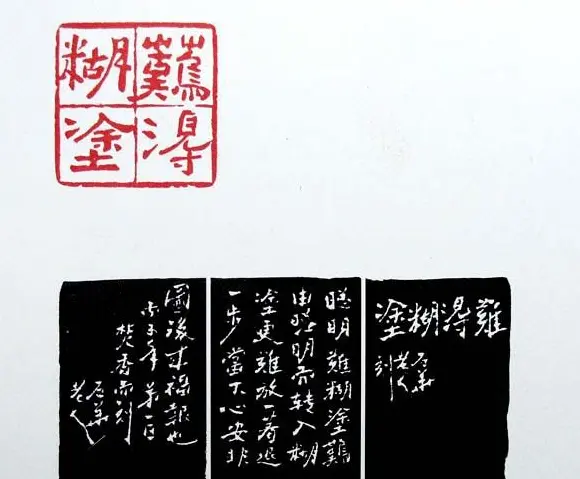 難得
糊塗
難得糊塗
老人
刻
聰明難糊塗難
由聰明而轉入糊
塗更難放一着退
一步當下心安非
圖後來福報也
年第一日
焚香而刻
老人